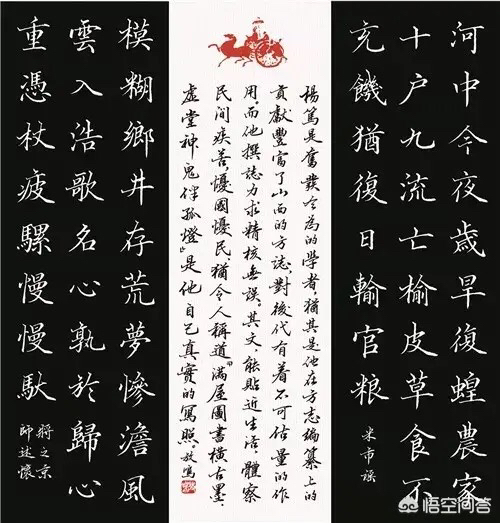 河中今夜歲旱復蝗農家
十户九流亡榆皮草食不
充饑猶復日輸官粮
米市謡
楊篤是奮發令為的學者,猶其是他在方志編纂上的
貢獻豐富了山西的方誌.對後代有着不可估量的作
用.而他撰誌力求精核無誤,其文,能貼近生活,體察
民间疾苦,憂國憂民,猶令人稱道"滿屋圖書橫古墨,
虛堂神鬼伴孤燈"是他自己真實的寫照.敬寫
模糊鄉井存荒夢慘澹風
雲入浩歌名心孰於歸心
重憑杖疲騾慢慢馱
將之京
師述懷
悟空问答